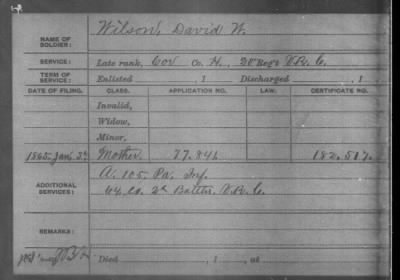 NAME OF SOLDIER: Wilson, David W.
SERVICE: Late rank, Cor Co. H, 20 Reg't V.R.C.
TERM OF SERVICE: Enlisted , 1 Discharged , 1
DATE OF FILING. CLASS. APPLICATION NO. LAW: CERTIFICATE NO.
Invalid,
Widow,
Minor,
1865 Jan'y 3d Mother. 77.841 182.517.
ADDITIONAL SERVICES: A. 105. Pa. Inf.
64. Co. 2d Batt'n. V.R.C.
REMARKS:
Died , 1 , at